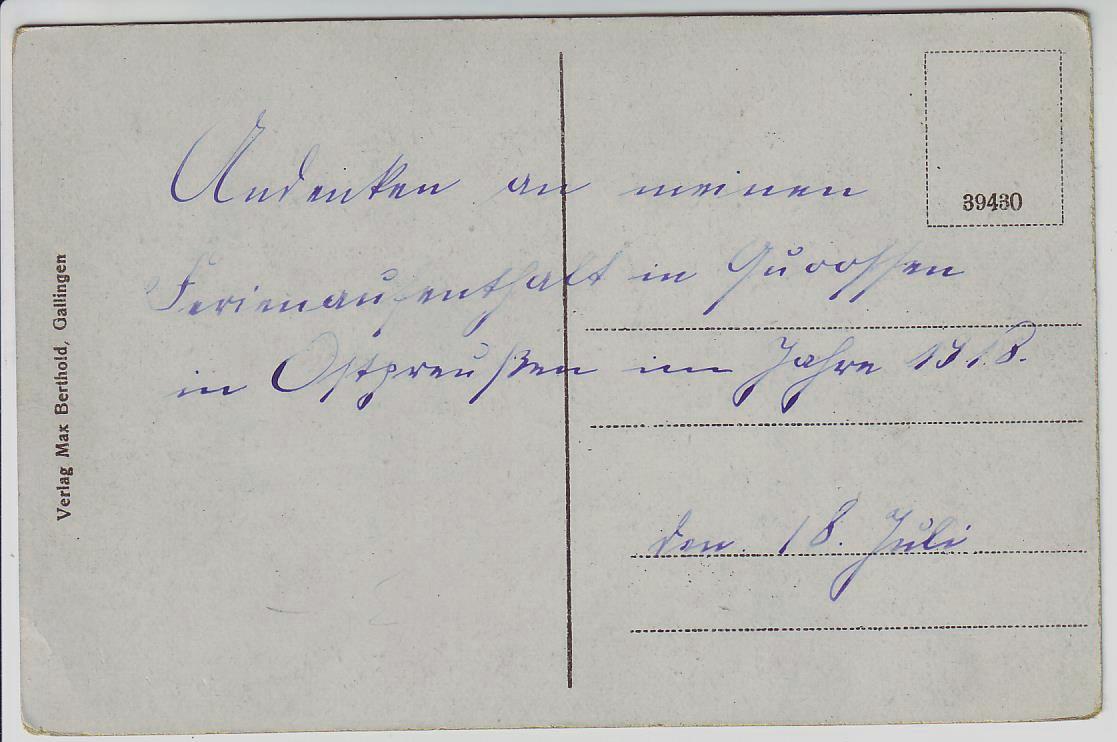 Andenken an meinen
Ferienaufenthalt in Quoossen
in Ostpreußen im Jahre 1918.
den 18. Juli
Verlag Max Berthold, Gallingen
39430